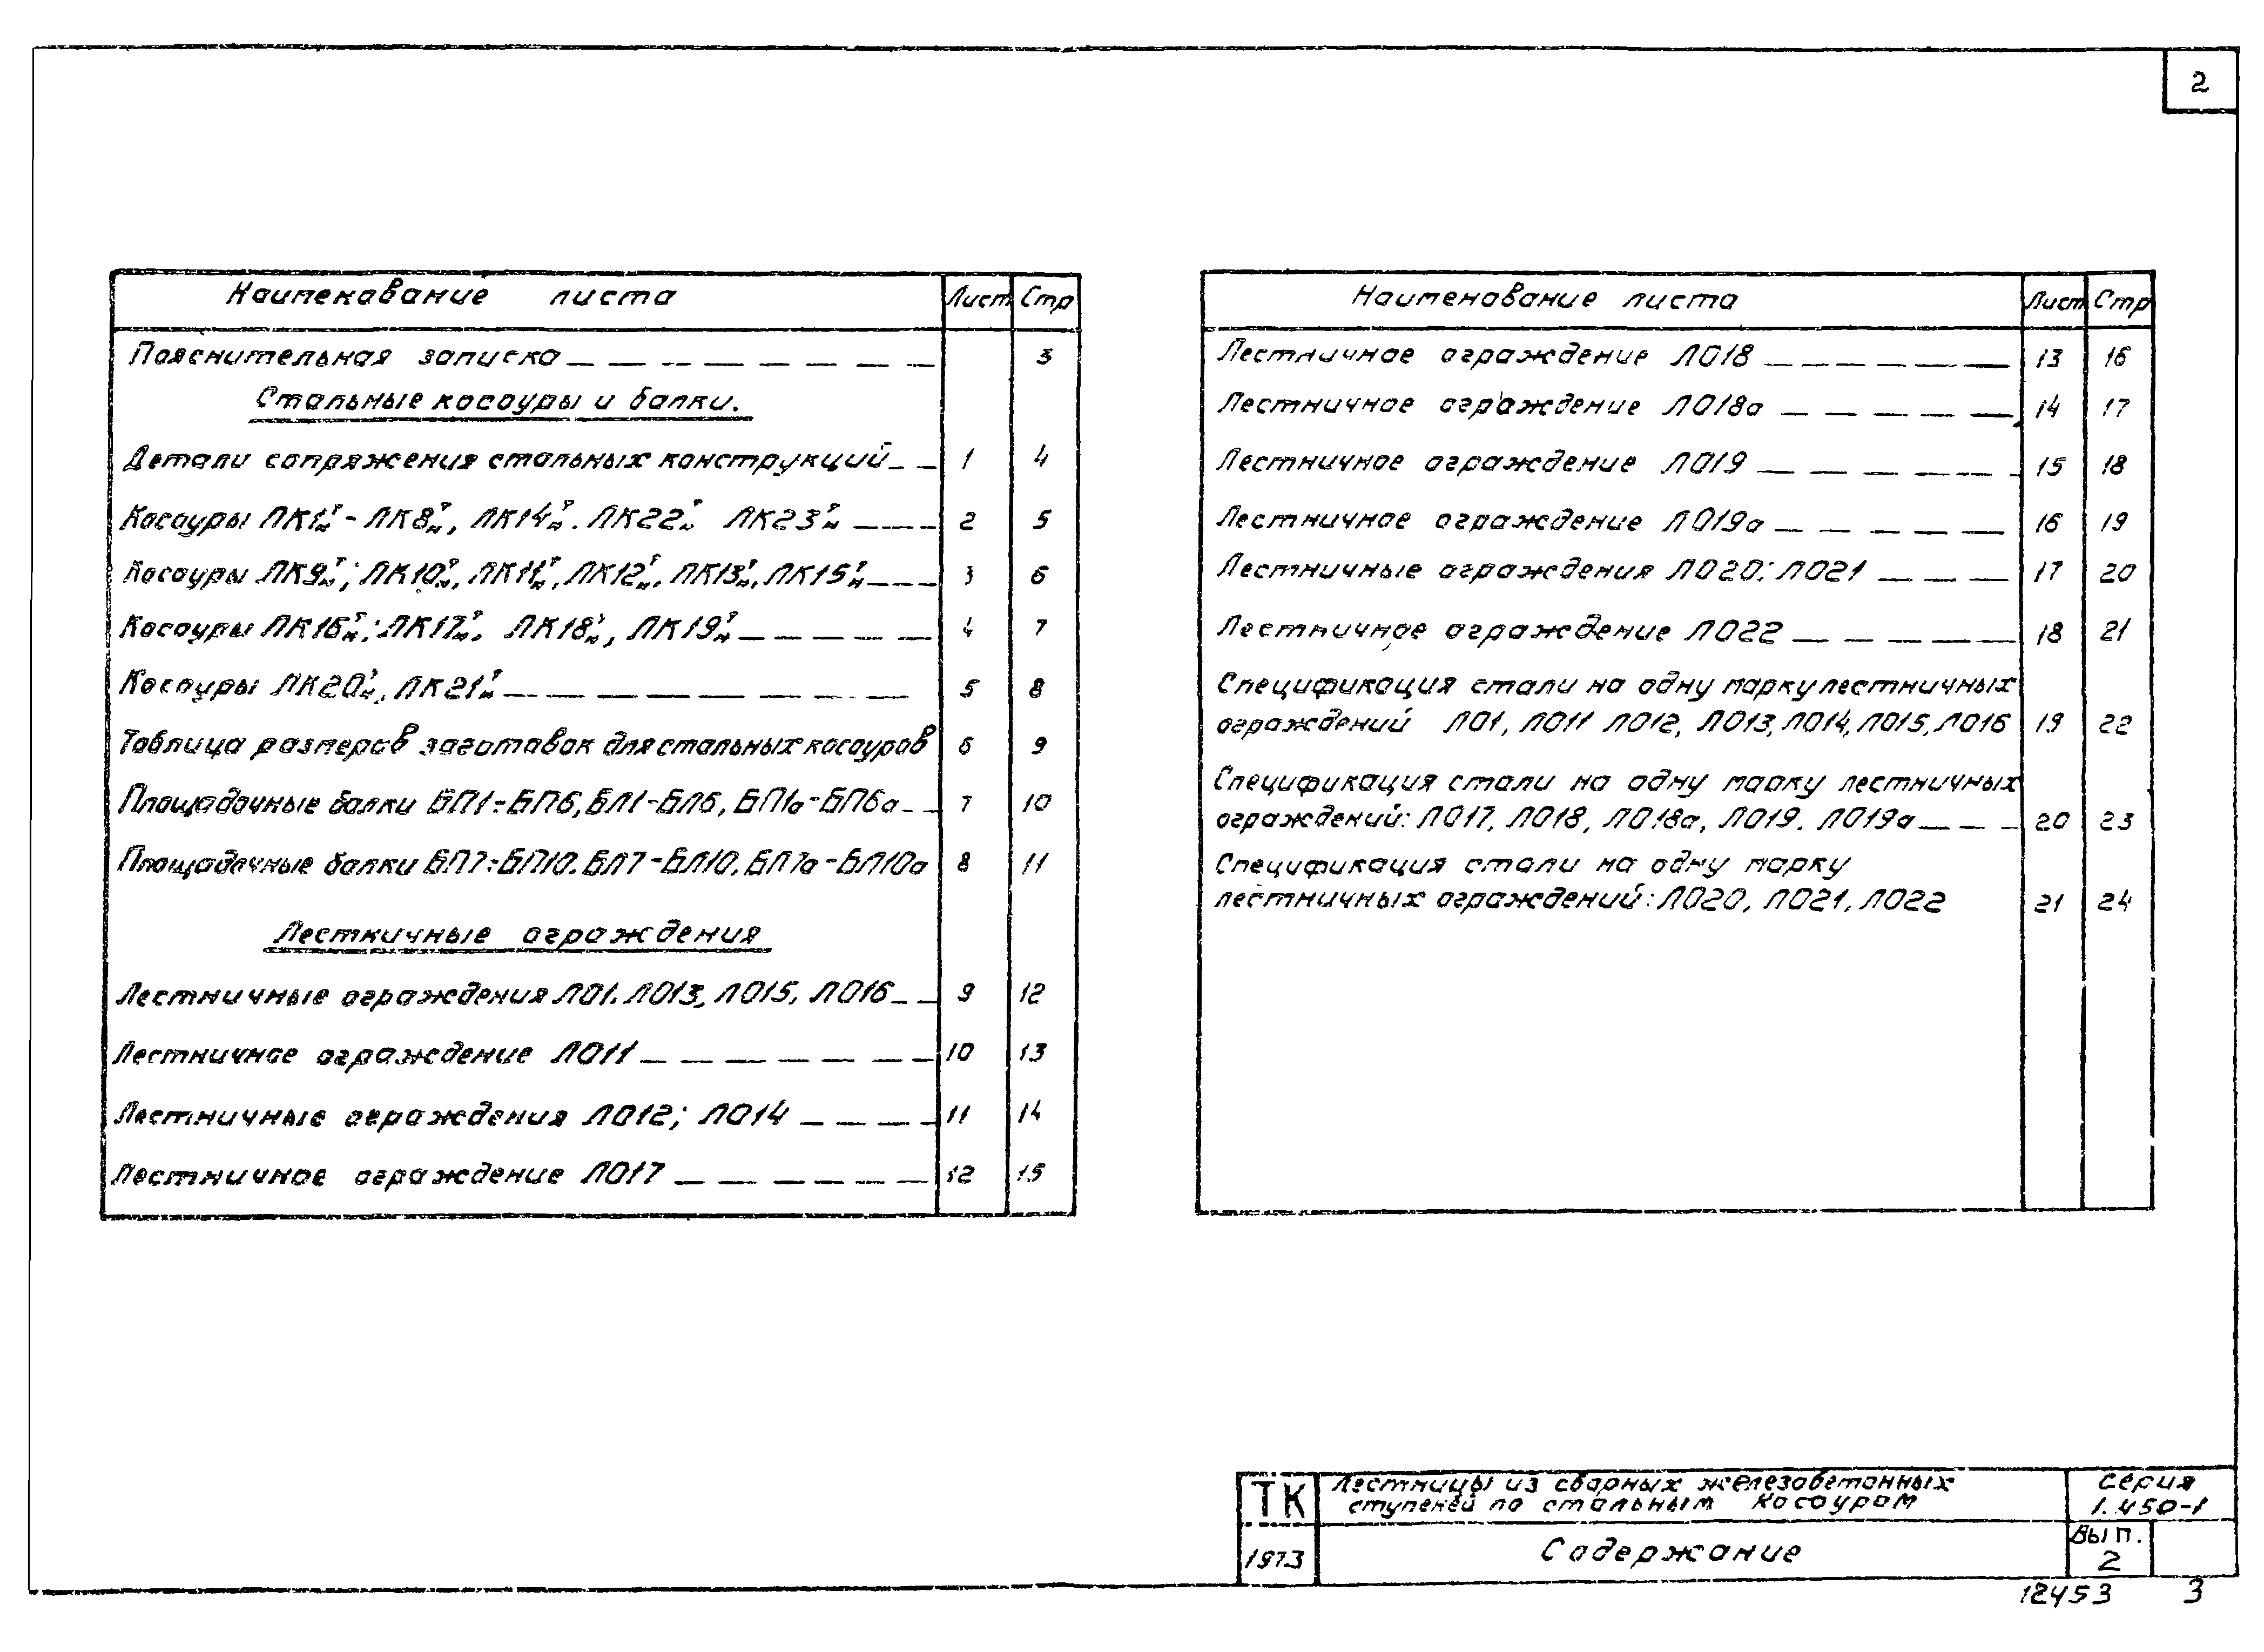 2
Наименование листа Лист Стр
Пояснительная записка 3
Стальные косоуры и балки.
Детали сопряжения стальных конструкций 1 4
Косоуры ЛК1т/н - ЛК8т/н, ЛК14т/н. ЛК22т/н ЛК23т/н 2 5
Косоуры ЛК9т/н; ЛК10т/н, ЛК11т/н, ЛК12т/н, ЛК13т/н, ЛК15т/н 3 6
Косоуры ЛК16т/н; ЛК17т/н, ЛК18т/н, ЛК19т/н 4 7
Косоуры ЛК20т/н, ЛК21т/н 5 8
Таблица размеров заготовок для стальных косоуров 6 9
Площадочные балки БП1÷БП6, БЛ1-БЛ6, БП1а-БП6а 7 10
Площадочные балки БП7÷БП10. БЛ7-БЛ10. БЛ7а-БЛ10а 8 11
Лестничные ограждения
Лестничные ограждения ЛО1. ЛО13, ЛО15, ЛО16 9 12
Лестничное ограждение ЛО11 10 13
Лестничные ограждения ЛО12; ЛО14 11 14
Лестничное ограждение ЛО17 12 15
Наименование листа Лист Стр
Лестничное ограждение ЛО18 13 16
Лестничное ограждение ЛО18а 14 17
Лестничное ограждение ЛО19 15 18
Лестничное ограждение ЛО19а 16 19
Лестничные ограждения ЛО20; ЛО21 17 20
Лестничное ограждение ЛО22 18 21
Спецификация стали на одну марку лестничных
ограждений ЛО1, ЛО11 ЛО12, ЛО13, ЛО14, ЛО15, ЛО16 19 22
Спецификация стали на одну марку лестничных
ограждений: ЛО17, ЛО18, ЛО18а, ЛО19. ЛО19а 20 23
Спецификация стали на одну марку
лестничных ограждений: ЛО20, ЛО21, ЛО22 21 24
ТК Лестницы из сборных железобетонных
ступеней по стальным косоурам
серия
1.450-1
1973 Содержание
Вып.
2
12453 3